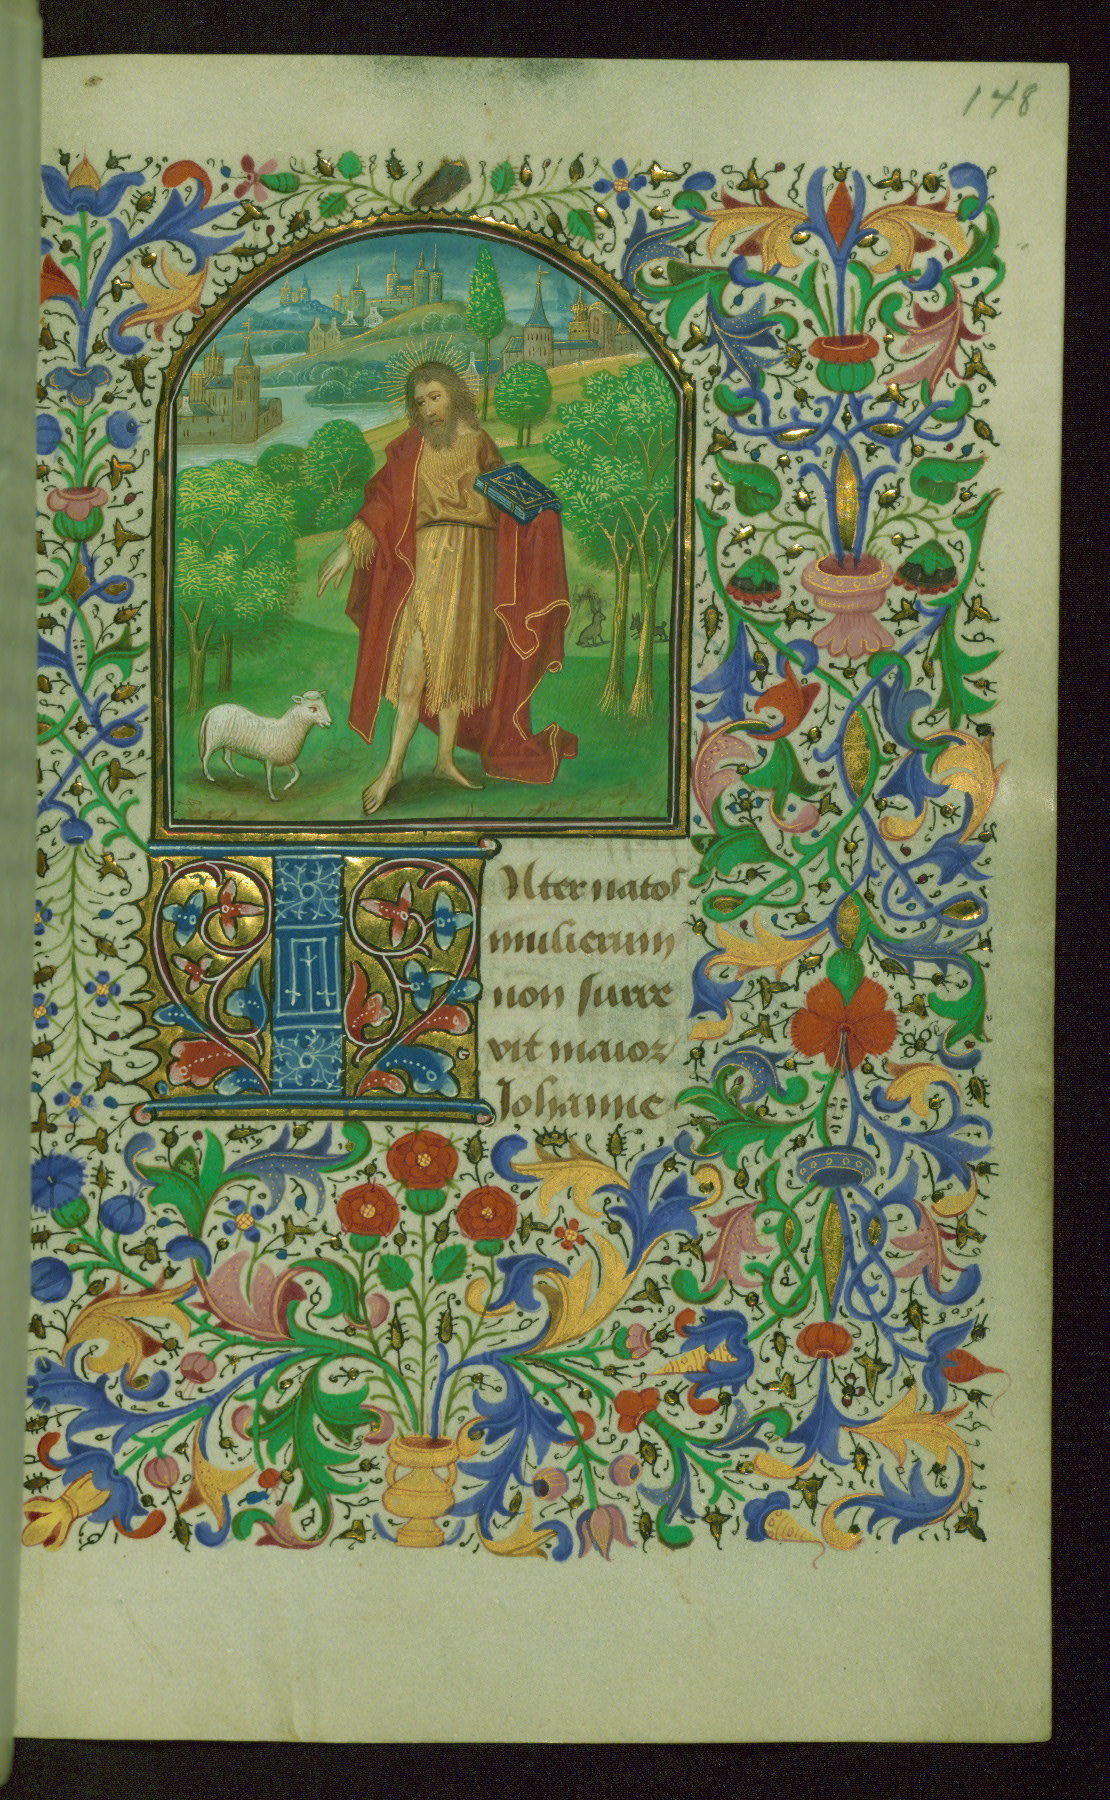 148
Inter natos
mulierum
non surre
xit maior
Johanne